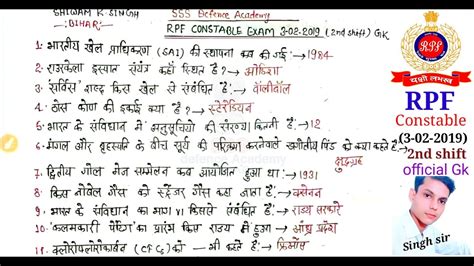 SHIVAM K. SINGH
BIHAR
SSS Defence Academy
RPF CONSTABLE EXAM 3-02-2019 (2nd shift) GK
1- भारतीय खेल प्राधिकरण (SAI) की स्थापना कब की गई → 1984
2- राउरकेला इस्पात संयंत्र कहाँ स्थित है? → ओडिशा
3- 'सर्विस' शब्द किस खेल से संबंधित है → वॉलीबॉल
4- ठोस कोण की इकाई क्या है? → स्टेरेडियन
5- भारत के संविधान में अनुसूचियो की संख्या कितनी है → 12
6- मंगल और बृहस्पति के बीच सूर्य की परिक्रमा करनेवाले खगोलीय पिंड को क्या कहते है → क्षुद्रग्रह
7- द्वितीय गोल मेज सम्मेलन कब आयोजित हुआ था → 1931
8- किस नोबेल गैस को स्ट्रेंजर गैस कहा जाता है → क्सेनन
9- भारत के संविधान का भाग VI किससे संबंधित है → राज्य सरकारें
10- 'कलमकारी पेंटिंग' का प्रारंभ किस राज्य में हुआ → आंध्र प्रदेश
11- क्लोरोफ्लोरोकार्बन (CFC) को — भी कहते है → फ्रिऑन्स
defence Academy
RPF
यशो लभस्व
RPF
Constable
(3-02-2019)
2nd shift
official Gk
Singh sir